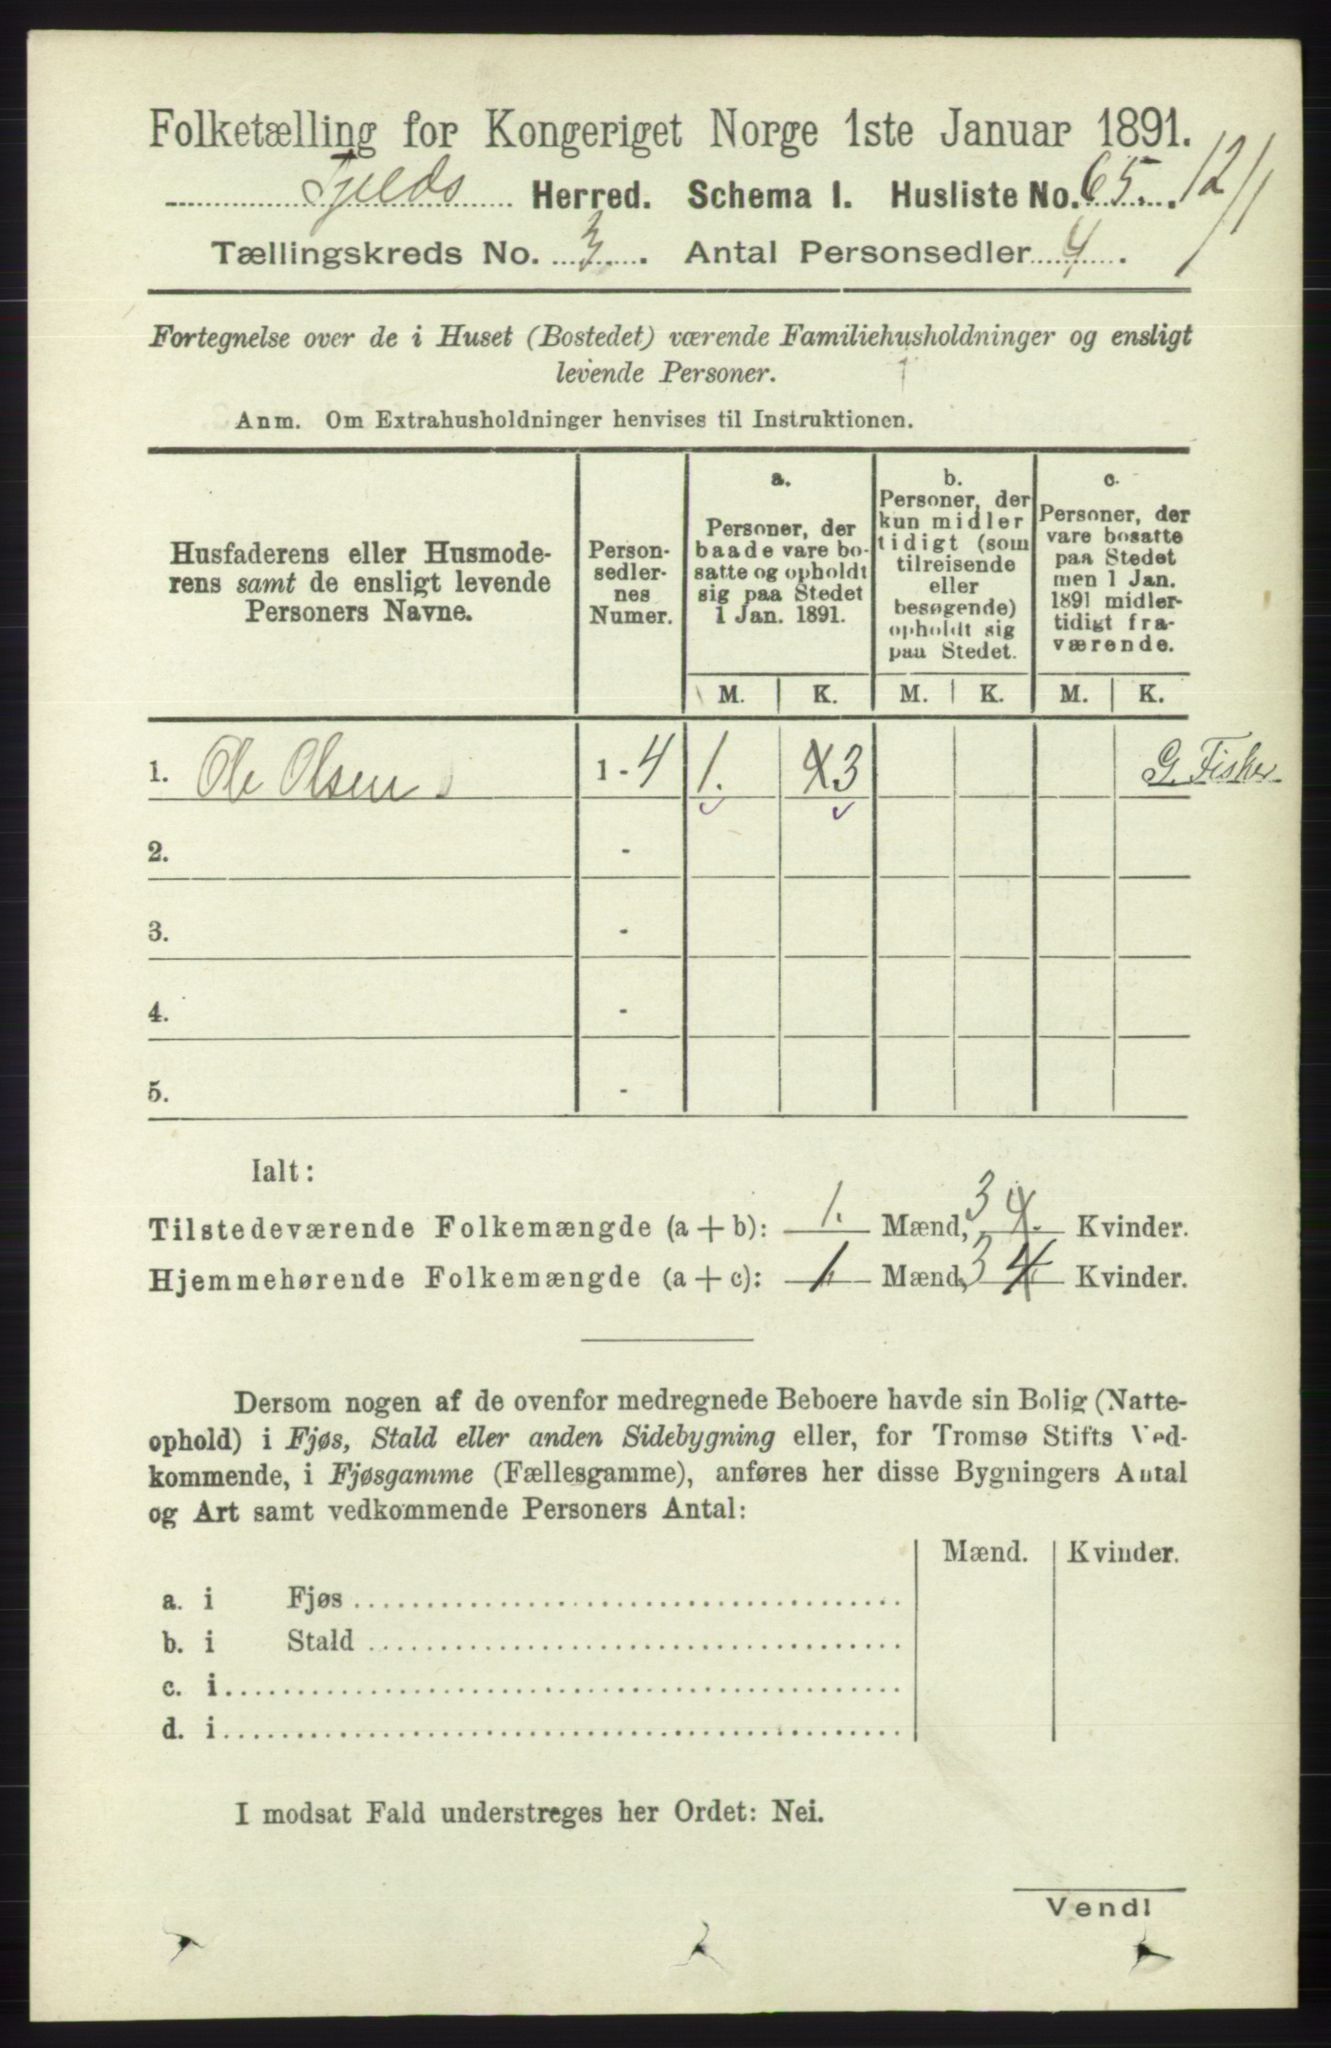 Folketælling for Kongeriget Norge 1ste Januar 1891.
Fjelds Herred. Schema I. Husliste No. 65. 12/1
Tællingskreds No. 3. Antal Personsedler 4.
Fortegnelse over de i Huset (Bostedet) værende Familiehusholdninger og ensligt
levende Personer.
Anm. Om Extrahusholdninger henvises til Instruktionen.
Husfaderens eller Husmode-
rens samt de ensligt levende
Personers Navne.
Person-
sedler-
nes
Numer.
a.
Personer, der
baade vare bo-
satte og opholdt
sig paa Stedet
1 Jan. 1891.
b.
Personer, der
kun midler
tidigt (som
tilreisende
eller
besøgende)
opholdt sig
paa Stedet.
c.
Personer, der
vare bosatte
paa Stedet
men 1 Jan.
1891 midler-
tidigt fra-
værende.
M. K. M. K. M. K.
1. Ole Olsen 1 - 4 1. 4 3 G. Fisker
2. -
3. -
4. -
5. -
Ialt:
Tilstedeværende Folkemængde (a + b): 1. Mænd, 3 4. Kvinder.
Hjemmehørende Folkemængde (a + c): 1 Mænd, 3 4 Kvinder.
Dersom nogen af de ovenfor medregnede Beboere havde sin Bolig (Natte-
ophold) i Fjøs, Stald eller anden Sidebygning eller, for Tromsø Stifts Ved-
kommende, i Fjøsgamme (Fællesgamme), anføres her disse Bygningers Antal
og Art samt vedkommende Personers Antal:
Mænd. Kvinder.
a. i Fjøs
b. i Stald
c. i
d. i
I modsat Fald understreges her Ordet: Nei.
Vend!